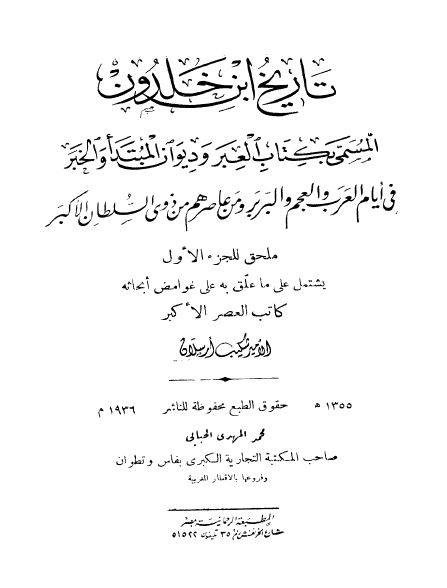 تاريخ ابن خلدون
المسمى بكتاب العبر وديوان المبتدأ والخبر
فى أيام العرب والعجم والبربر ومن عاصرهم من ذوى السلطان الأكبر
ملحق للجزء الأول
يشتمل على ما علق به على غوامض أبحاثه
كاتب العصر الأكبر
الأمير شكيب أرسلان
١٣٥٥ هـ حقوق الطبع محفوظة للناشر ١٩٣٦ م
محمد المهدى الحبابى
صاحب المكتبة التجارية الكبرى بفاس وتطوان
وفروعها بالاقطار المغربية
المطبعة الرحمانية بمصر
شارع الخرنفش نمرة ٣٥ تليفون ٥١٥٢٢